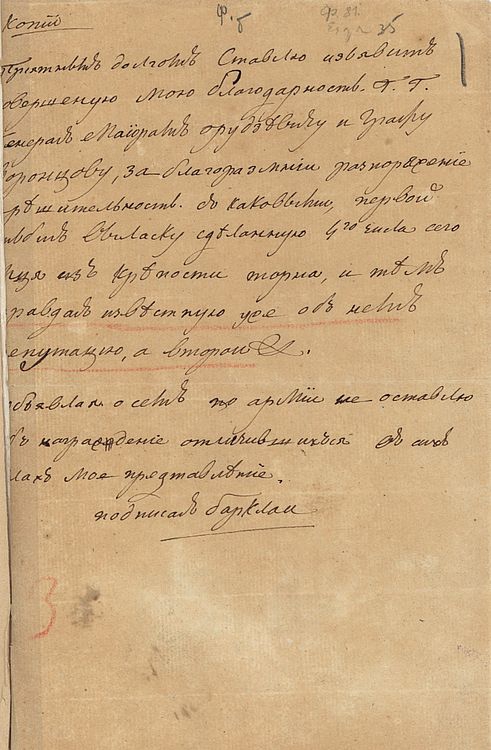 Копiя
Ф. 5
Ф. 81.
35
Прiятнымъ долгомъ Ставлю изъявить
овершеную мою благодарность. Г. Г.
енералъ Маiорамъ
и Графу
оронцову, за благоразумнiи разпоряженiе
рѣшительность. съ каковыми, первой
выласку сдѣланную 4го числа сего
ца изъ крѣпости торна, и тѣмъ
равдалъ извѣстную уже объ немъ
епутацiю, а второи
объявляя о семъ по армiи не оставлю
объ награжденiе отличившихся въ сихъ
лахъ мое представленiе.
подписалъ барклаи
3